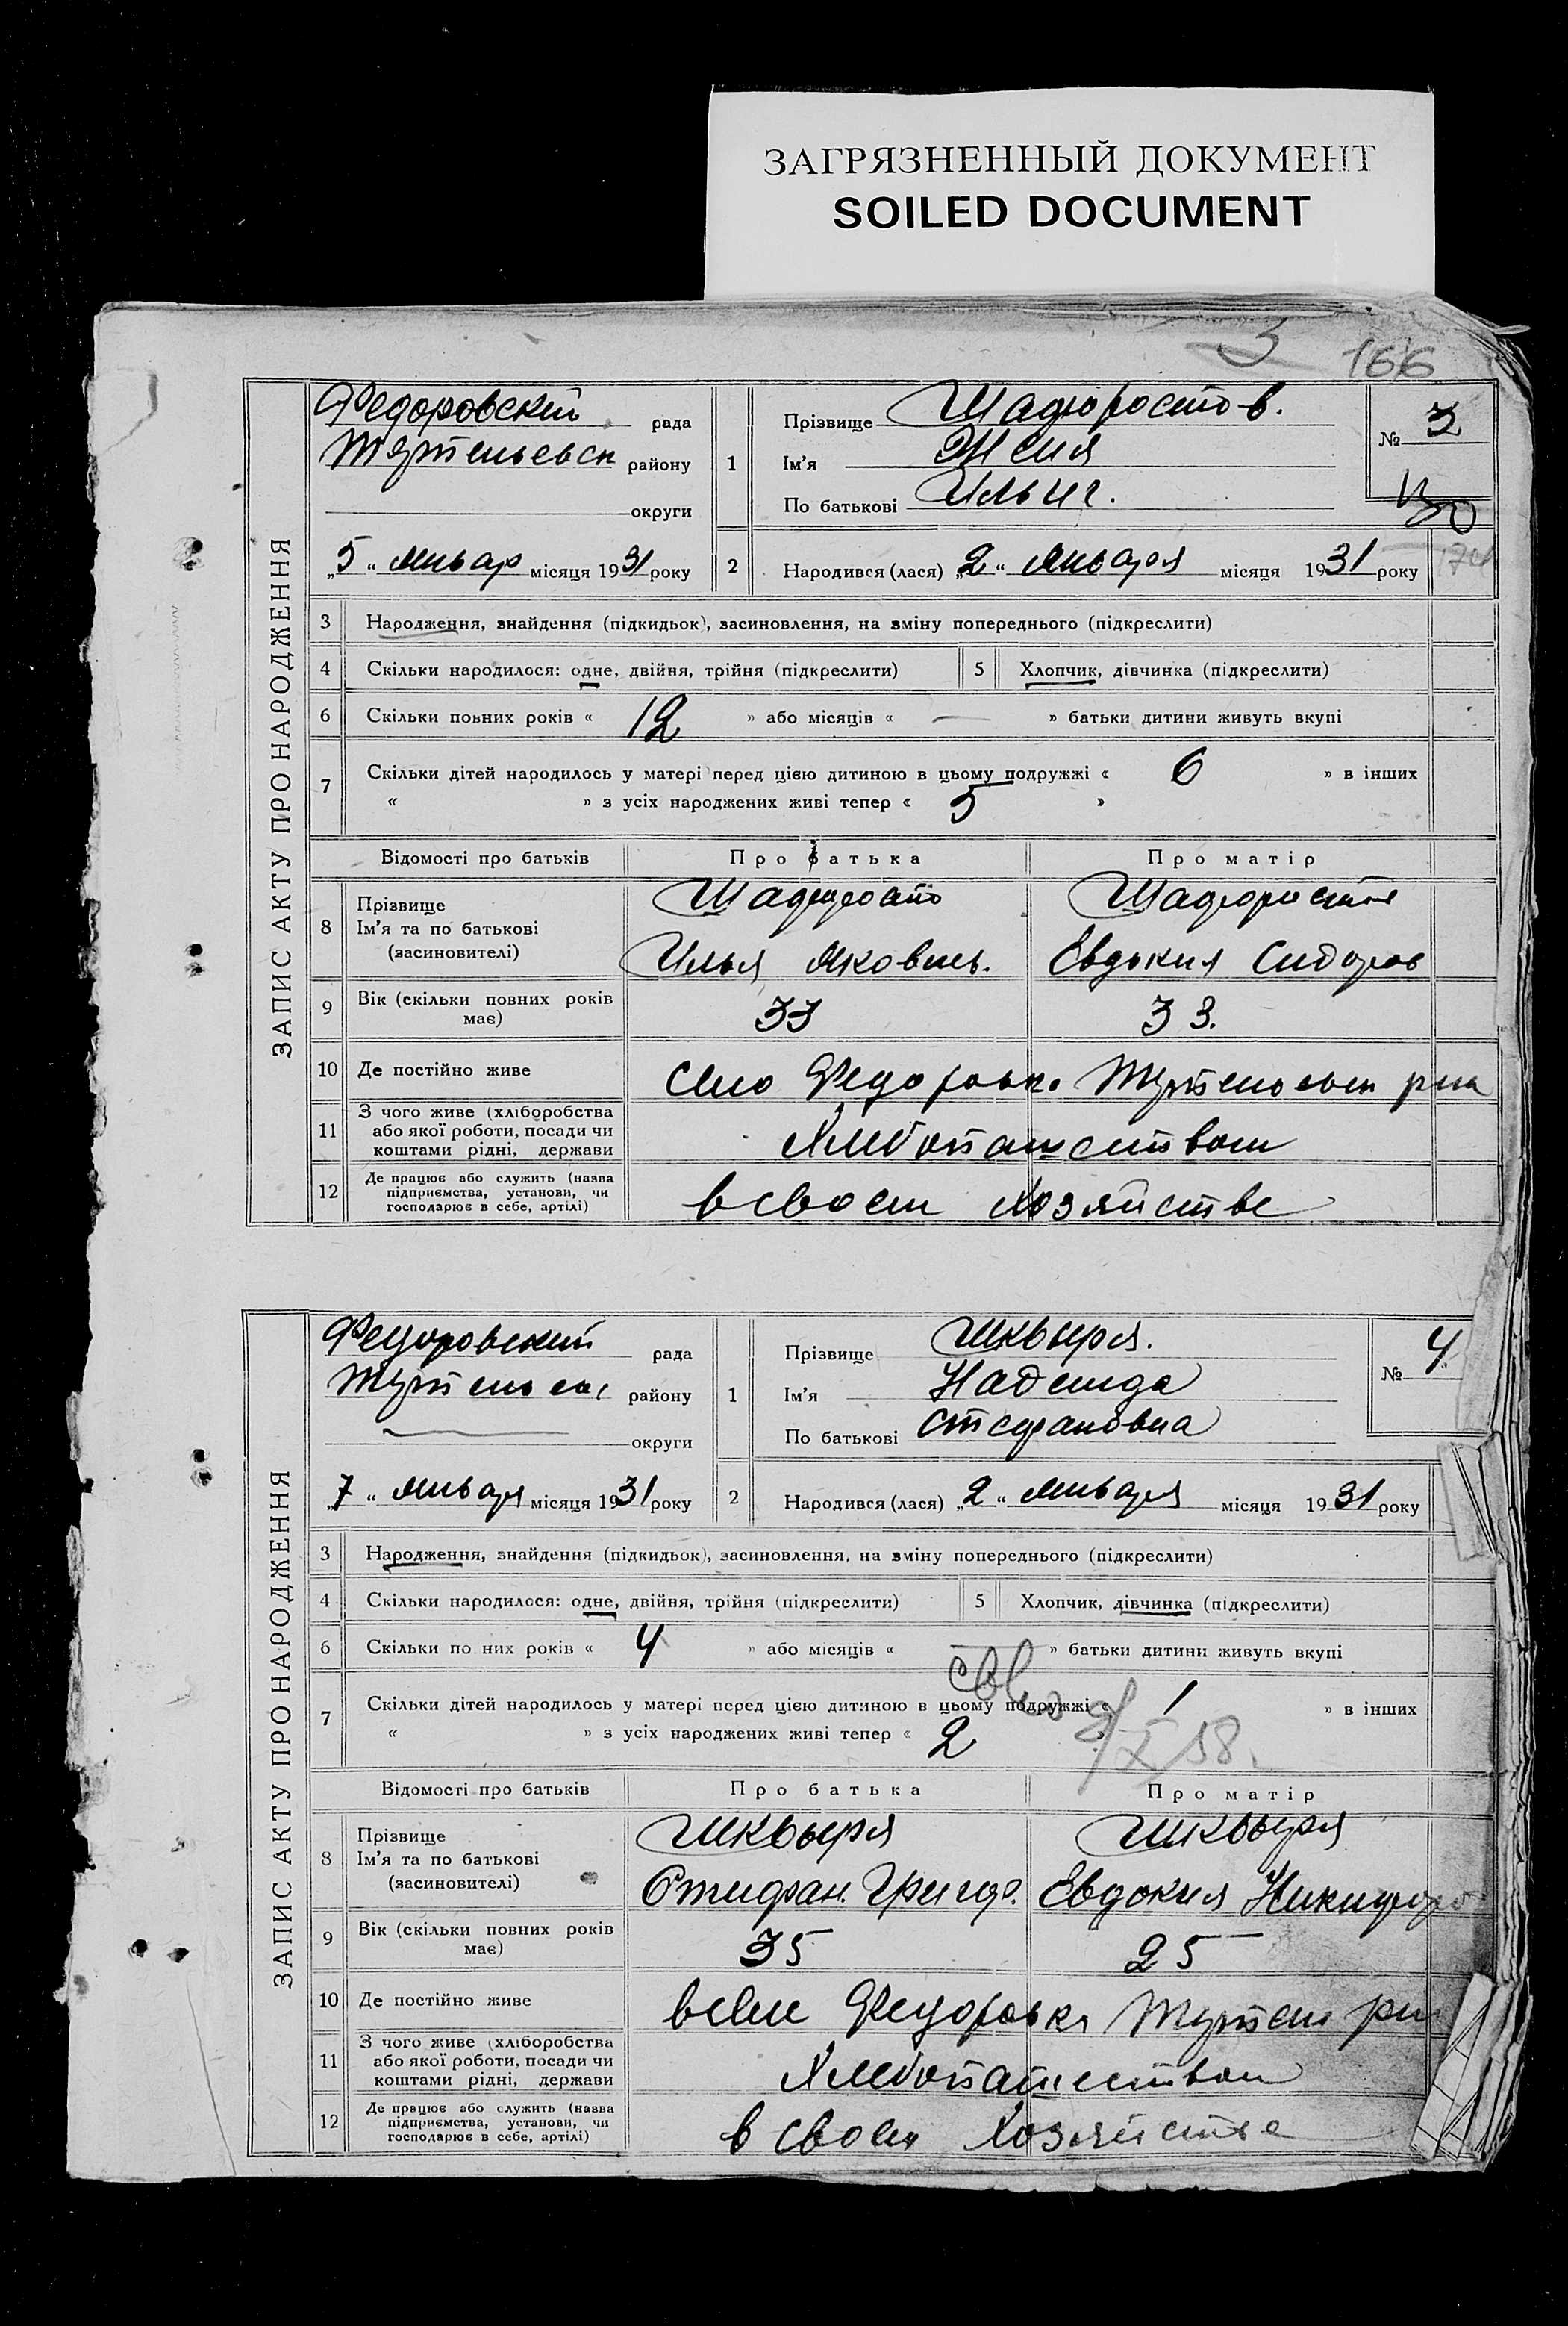 ЗАГРЯЗНЕННЫЙ ДОКУМЕНТ
SOILED DOCUMENT
3 166
ЗАПИС АКТУ ПРО НАРОДЖЕННЯ
Федоровский рада
району
округи
1 Прізвище
Ім'я
По батькові Ильич.
№ 3
„5“ январ місяця 1931 року
2 Народився (лася) „2“ января місяця 1931 року
3 Народження, знайдення (підкидьок), засиновлення, на зміну попереднього (підкреслити)
4 Скільки народилося: одне, двійня, трійня (підкреслити) 5 Хлопчик, дівчинка (підкреслити)
6 Скільки повних років « 12 » або місяців « — » батьки дитини живуть вкупі
7 Скільки дітей народилось у матері перед цією дитиною в цьому подружжі « 6 » в інших
« » з усіх народжених живі тепер « 5 »
Відомості про батьків Про батька Про матір
8 Прізвище
Ім'я та по батькові Илья Яковль. Евдокия Сидоров
(засиновителі)
9 Вік (скільки повних років має) 33 33.
10 Де постійно живе село Федоровка
11 З чого живе (хліборобства
або якої роботи, посади чи
коштами рідні, держави Хлебопашеством
12 Де працює або служить (назва
підприємства, установи, чи
господарює в себе, артілі) в своем хозяйстве
ЗАПИС АКТУ ПРО НАРОДЖЕННЯ
Федоровский рада
району
округи
1 Прізвище Шквыря.
Ім'я Надежда
По батькові Стефановна
№ 4
„7“ января місяця 1931 року
2 Народився (лася) „2“ января місяця 1931 року
3 Народження, знайдення (підкидьок), засиновлення, на зміну попереднього (підкреслити)
4 Скільки народилося: одне, двійня, трійня (підкреслити) 5 Хлопчик, дівчинка (підкреслити)
6 Скільки по них років « 4 » або місяців « — » батьки дитини живуть вкупі
7 Скільки дітей народилось у матері перед цією дитиною в цьому подружжі « 1 » в інших
« » з усіх народжених живі тепер « 2 »
Відомості про батьків Про батька Про матір
8 Прізвище Шквыря Шквыря
Ім'я та по батькові Стифан. Григор. Евдокия Никифоро
(засиновителі)
9 Вік (скільки повних років має) 35 25
10 Де постійно живе в селе Федоровка
11 З чого живе (хліборобства
або якої роботи, посади чи
коштами рідні, держави Хлебопашеством
12 Де працює або служить (назва
підприємства, установи, чи
господарює в себе, артілі) в своем хозяйстве